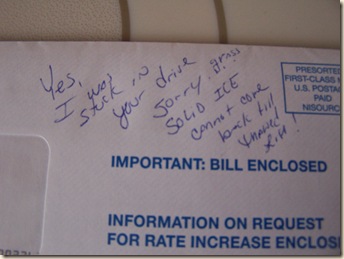 Yes,
I was
stuck in
your drive
Sorry, grass
SOLID ICE
cannot come
back till
thawed
PRESORTE
FIRST-CLASS M
U.S. POSTA
PAID
NISOURC
IMPORTANT: BILL ENCLOSED
INFORMATION ON REQUEST
FOR RATE INCREASE ENCLOS